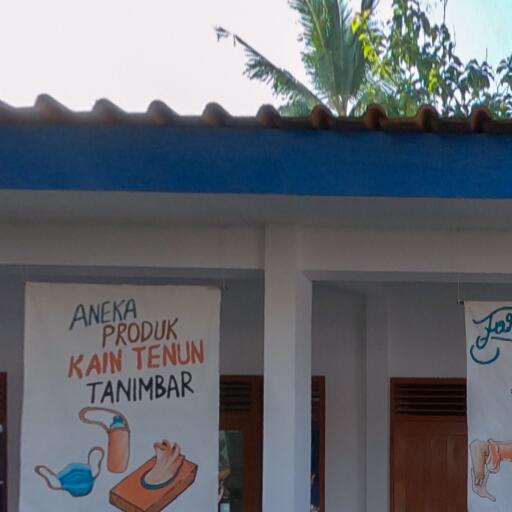 ANEKA
PRODUK
KAIN TENUN
TANIMBAR